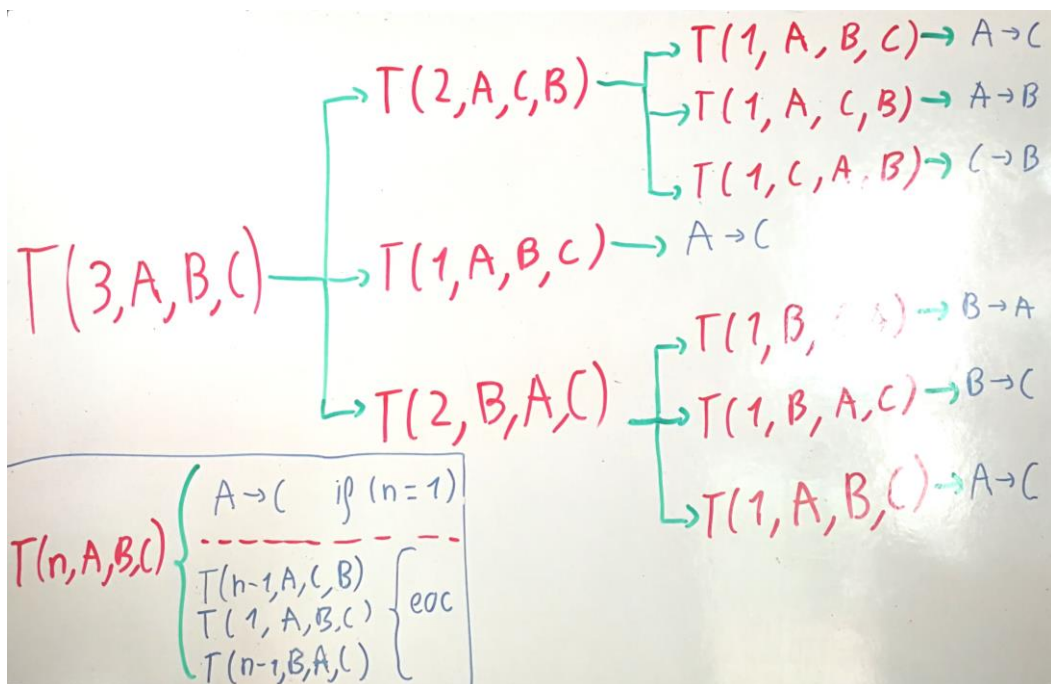 T(3,A,B,C)
T(2,A,C,B)
T(1,A,B,C) → A→C
T(1,A,C,B) → A→B
T(1,C,A,B) → C→B
T(1,A,B,C) → A→C
T(2,B,A,C)
T(1,B, ) → B→A
T(1,B,A,C) → B→C
T(1,A,B,C) → A→C
T(n,A,B,C)
A→C if (n=1)
T(n-1,A,C,B)
T(1,A,B,C)
T(n-1,B,A,C)
eoc